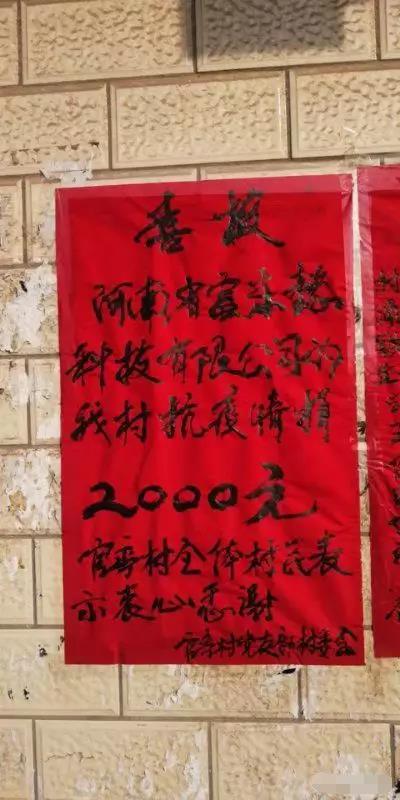 喜报
河南省富来懿
科技有限公司为
我村抗疫情捐
2000元
官寺村全体村民表
示衷心感谢
官寺村党支部村委会